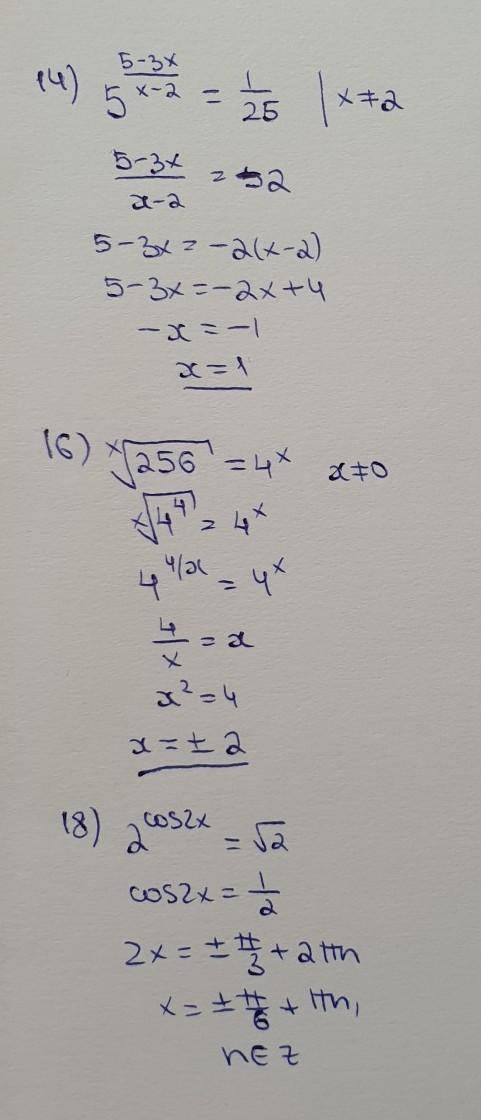 14) 5^((5-3x)/(x-2)) = 1/25 | x≠2
(5-3x)/(x-2) = -2
5-3x = -2(x-2)
5-3x = -2x+4
-x = -1
x = 1
16) ˣ√256 = 4^x x≠0
ˣ√4^4 = 4^x
4^(4/x) = 4^x
4/x = x
x² = 4
x = ± 2
18) 2^(cos2x) = √2
cos2x = 1/2
2x = ± π/3 + 2πn
x = ± π/6 + πn,
n∈z